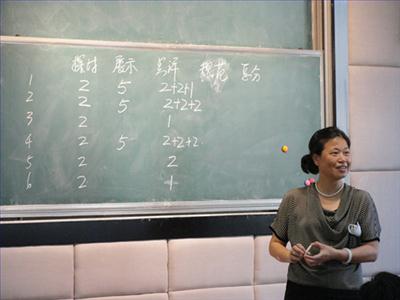 探讨 展示 点评 规范 总分
1 2 5 2+2+1
2 2 5 2+2+2
3 2 1
4 2 5 2+2+2
5 2 2
6 2 1